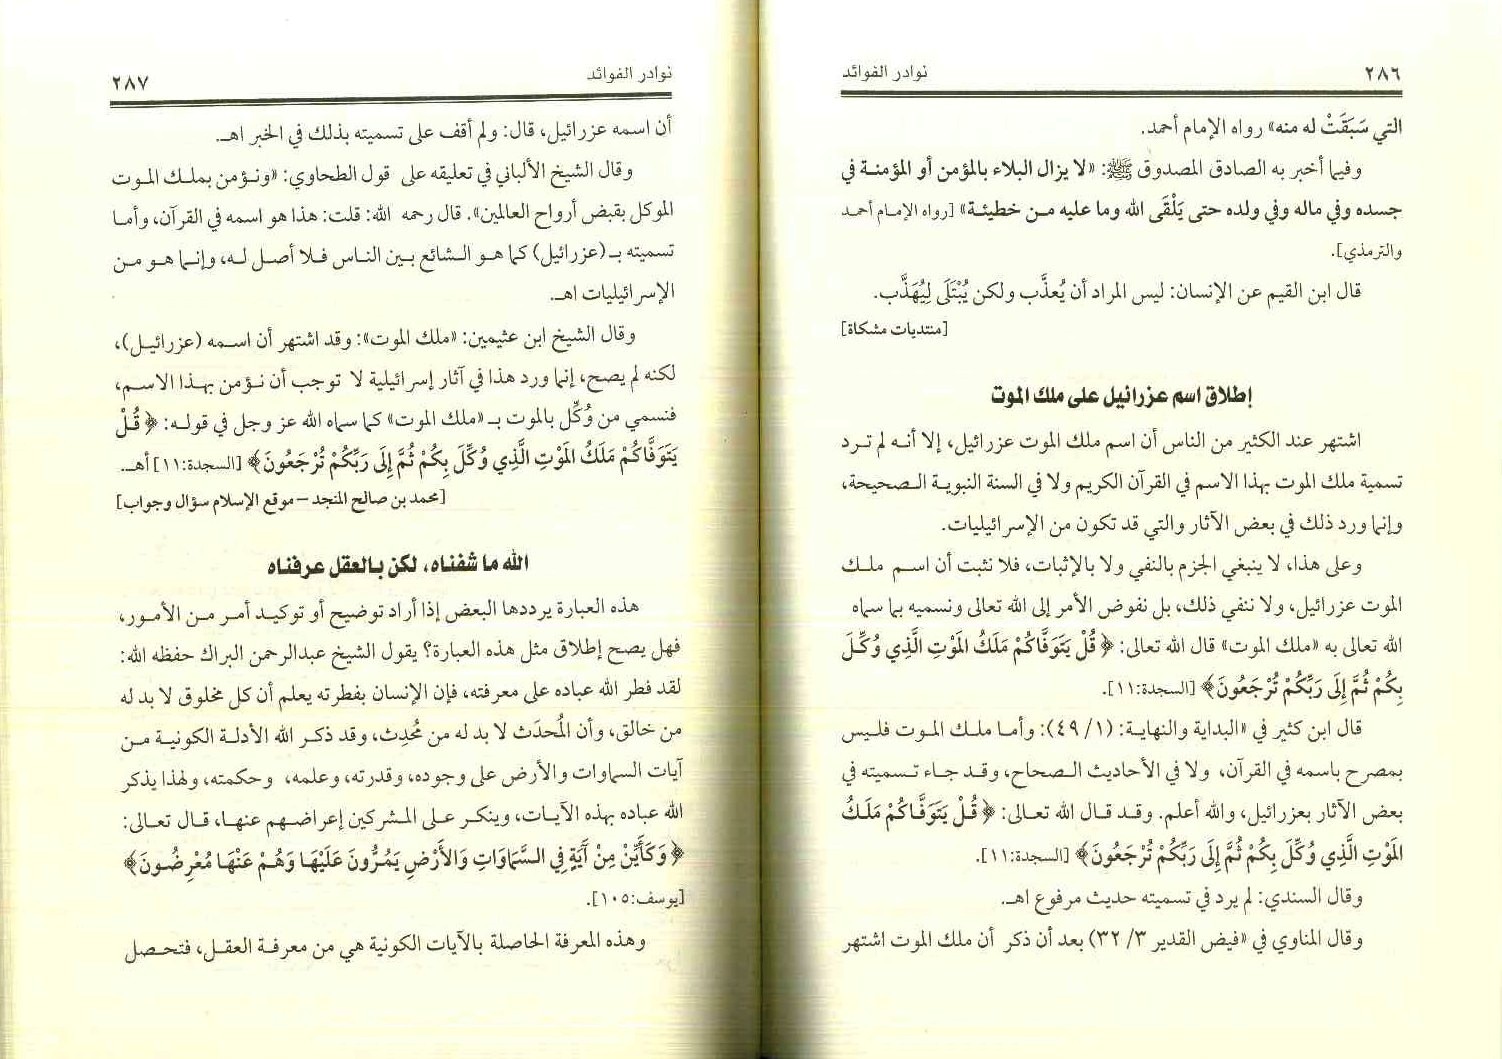 ٢٨٦ نوادر الفوائد
التي سَبَقَتْ له منه» رواه الإمام أحمد.
وفيما أخبر به الصادق المصدوق ﷺ: «لا يزال البلاء بالمؤمن أو المؤمنة في
جسده وفي ماله وفي ولده حتى يَلْقَى الله وما عليه من خطيئة» [رواه الإمام أحمد
والترمذي].
قال ابن القيم عن الإنسان: ليس المراد أن يُعذَّب ولكن يُبْتَلَى لِيُهَذَّب.
[منتديات مشكاة]
إطلاق اسم عزرائيل على ملك الموت
اشتهر عند الكثير من الناس أن اسم ملك الموت عزرائيل، إلا أنه لم ترد
تسمية ملك الموت بهذا الاسم في القرآن الكريم ولا في السنة النبوية الصحيحة،
وإنما ورد ذلك في بعض الآثار والتي قد تكون من الإسرائيليات.
وعلى هذا، لا ينبغي الجزم بالنفي ولا بالإثبات، فلا نثبت أن اسم ملك
الموت عزرائيل، ولا ننفي ذلك، بل نفوض الأمر إلى الله تعالى ونسميه بما سماه
الله تعالى به «ملك الموت» قال الله تعالى: ﴿قُلْ يَتَوَفَّاكُمْ مَلَكُ المَوْتِ الَّذِي وُكِّلَ
بِكُمْ ثُمَّ إِلَى رَبِّكُمْ تُرْجَعُونَ﴾ [السجدة:١١].
قال ابن كثير في «البداية والنهاية: (١/ ٤٩): وأما ملك الموت فليس
بمصرح باسمه في القرآن، ولا في الأحاديث الصحاح، وقد جاء تسميته في
بعض الآثار بعزرائيل، والله أعلم. وقد قال الله تعالى: ﴿قُلْ يَتَوَفَّاكُمْ مَلَكُ
المَوْتِ الَّذِي وُكِّلَ بِكُمْ ثُمَّ إِلَى رَبِّكُمْ تُرْجَعُونَ﴾ [السجدة:١١].
وقال السندي: لم يرد في تسميته حديث مرفوع اهـ.
وقال المناوي في «فيض القدير ٣/ ٣٢) بعد أن ذكر أن ملك الموت اشتهر
نوادر الفوائد ٢٨٧
أن اسمه عزرائيل، قال: ولم أقف على تسميته بذلك في الخبر اهـ.
وقال الشيخ الألباني في تعليقه على قول الطحاوي: «ونؤمن بملك الموت
الموكل بقبض أرواح العالمين». قال رحمه الله: قلت: هذا هو اسمه في القرآن، وأما
تسميته بـ(عزرائيل) كما هو الشائع بين الناس فلا أصل له، وإنما هو من
الإسرائيليات اهـ.
وقال الشيخ ابن عثيمين: «ملك الموت»: وقد اشتهر أن اسمه (عزرائيل)،
لكنه لم يصح، إنما ورد هذا في آثار إسرائيلية لا توجب أن نؤمن بهذا الاسم،
فنسمي من وُكِّل بالموت بـ «ملك الموت» كما سماه الله عز وجل في قوله: ﴿قُلْ
يَتَوَفَّاكُمْ مَلَكُ المَوْتِ الَّذِي وُكِّلَ بِكُمْ ثُمَّ إِلَى رَبِّكُمْ تُرْجَعُونَ﴾ [السجدة:١١] أهـ.
[محمد بن صالح المنجد – موقع الإسلام سؤال وجواب]
الله ما شفناه، لكن بالعقل عرفناه
هذه العبارة يرددها البعض إذا أراد توضيح أو توكيد أمر من الأمور،
فهل يصح إطلاق مثل هذه العبارة؟ يقول الشيخ عبدالرحمن البراك حفظه الله:
لقد فطر الله عباده على معرفته، فإن الإنسان بفطرته يعلم أن كل مخلوق لا بد له
من خالق، وأن المُحدَث لا بد له من مُحدِث، وقد ذكر الله الأدلة الكونية من
آيات السماوات والأرض على وجوده، وقدرته، وعلمه، وحكمته، ولهذا يذكر
الله عباده بهذه الآيات، وينكر على المشركين إعراضهم عنها، قال تعالى:
﴿وَكَأَيِّنْ مِنْ آَيَةٍ فِي السَّمَاوَاتِ وَالأَرْضِ يَمُرُّونَ عَلَيْهَا وَهُمْ عَنْهَا مُعْرِضُونَ﴾
[يوسف:١٠٥].
وهذه المعرفة الحاصلة بالآيات الكونية هي من معرفة العقل، فتحصل